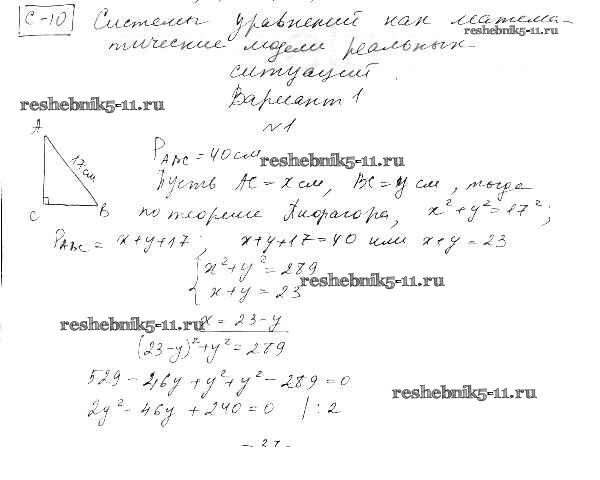 С-10 Системы уравнений как матема-
тические модели реальных
ситуаций.
Вариант 1
reshebnik5-11.ru
reshebnik5-11.ru
№1
A
17см
C
B
P_ABC = 40 см
reshebnik5-11.ru
Пусть AC = x см, BC = y см, тогда
по теореме Пифагора, x² + y² = 17²;
P_ABC = x + y + 17; x + y + 17 = 40 или x + y = 23
{ x² + y² = 289
{ x + y = 23
reshebnik5-11.ru
reshebnik5-11.ru
x = 23 - y
(23 - y)² + y² = 289
529 - 46y + y² + y² - 289 = 0
reshebnik5-11.ru
2y² - 46y + 240 = 0 / : 2
- 27 -